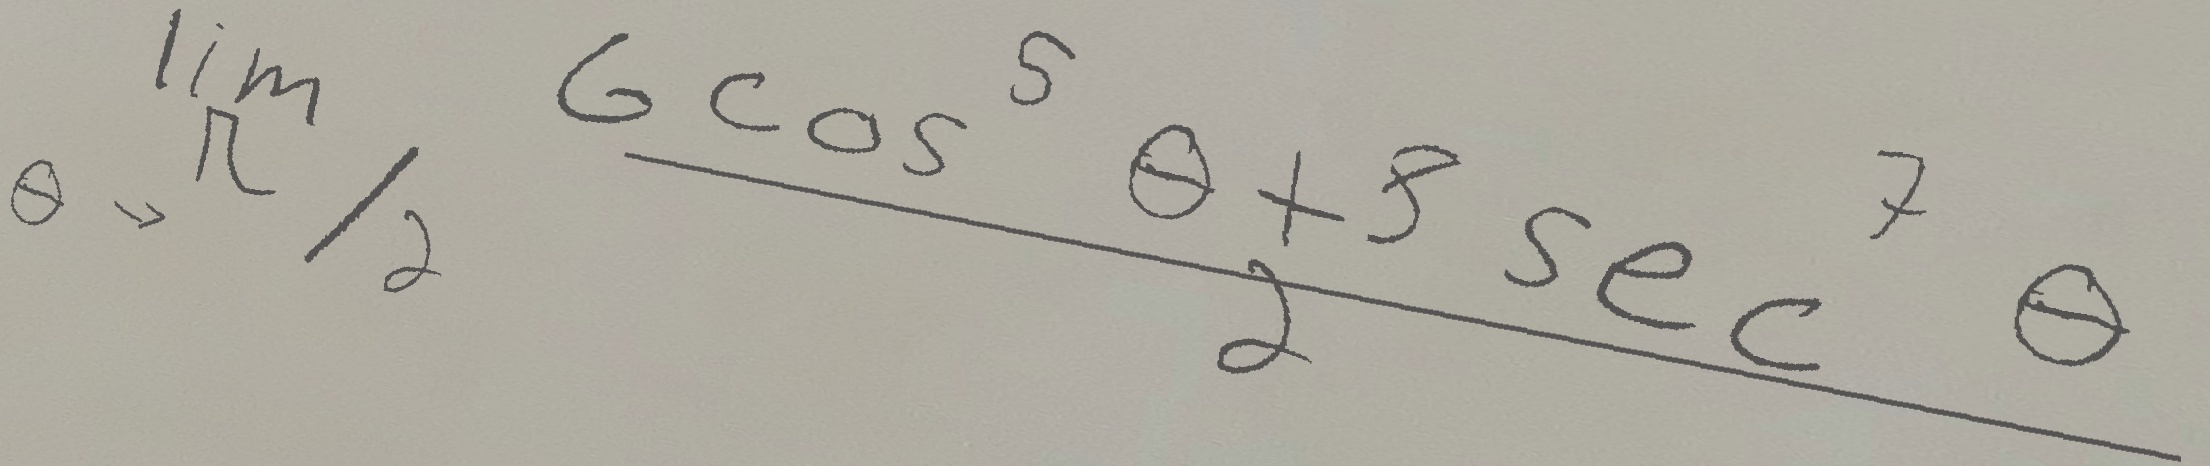 lim θ→π/2 (6cos^5 θ+8sec^7 θ)/2